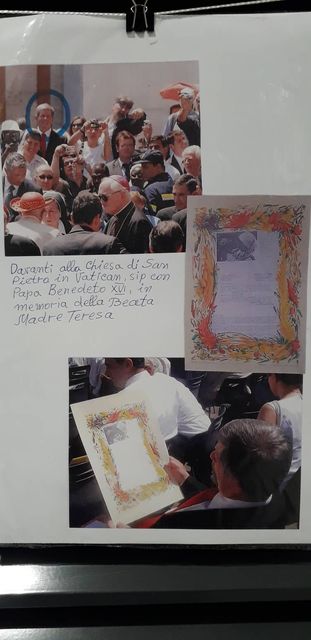 Davanti alla Chiesa di San
Pietro in Vatican, sip con
Papa Benedeto XVI, in
memoria della Beata
Madre Teresa